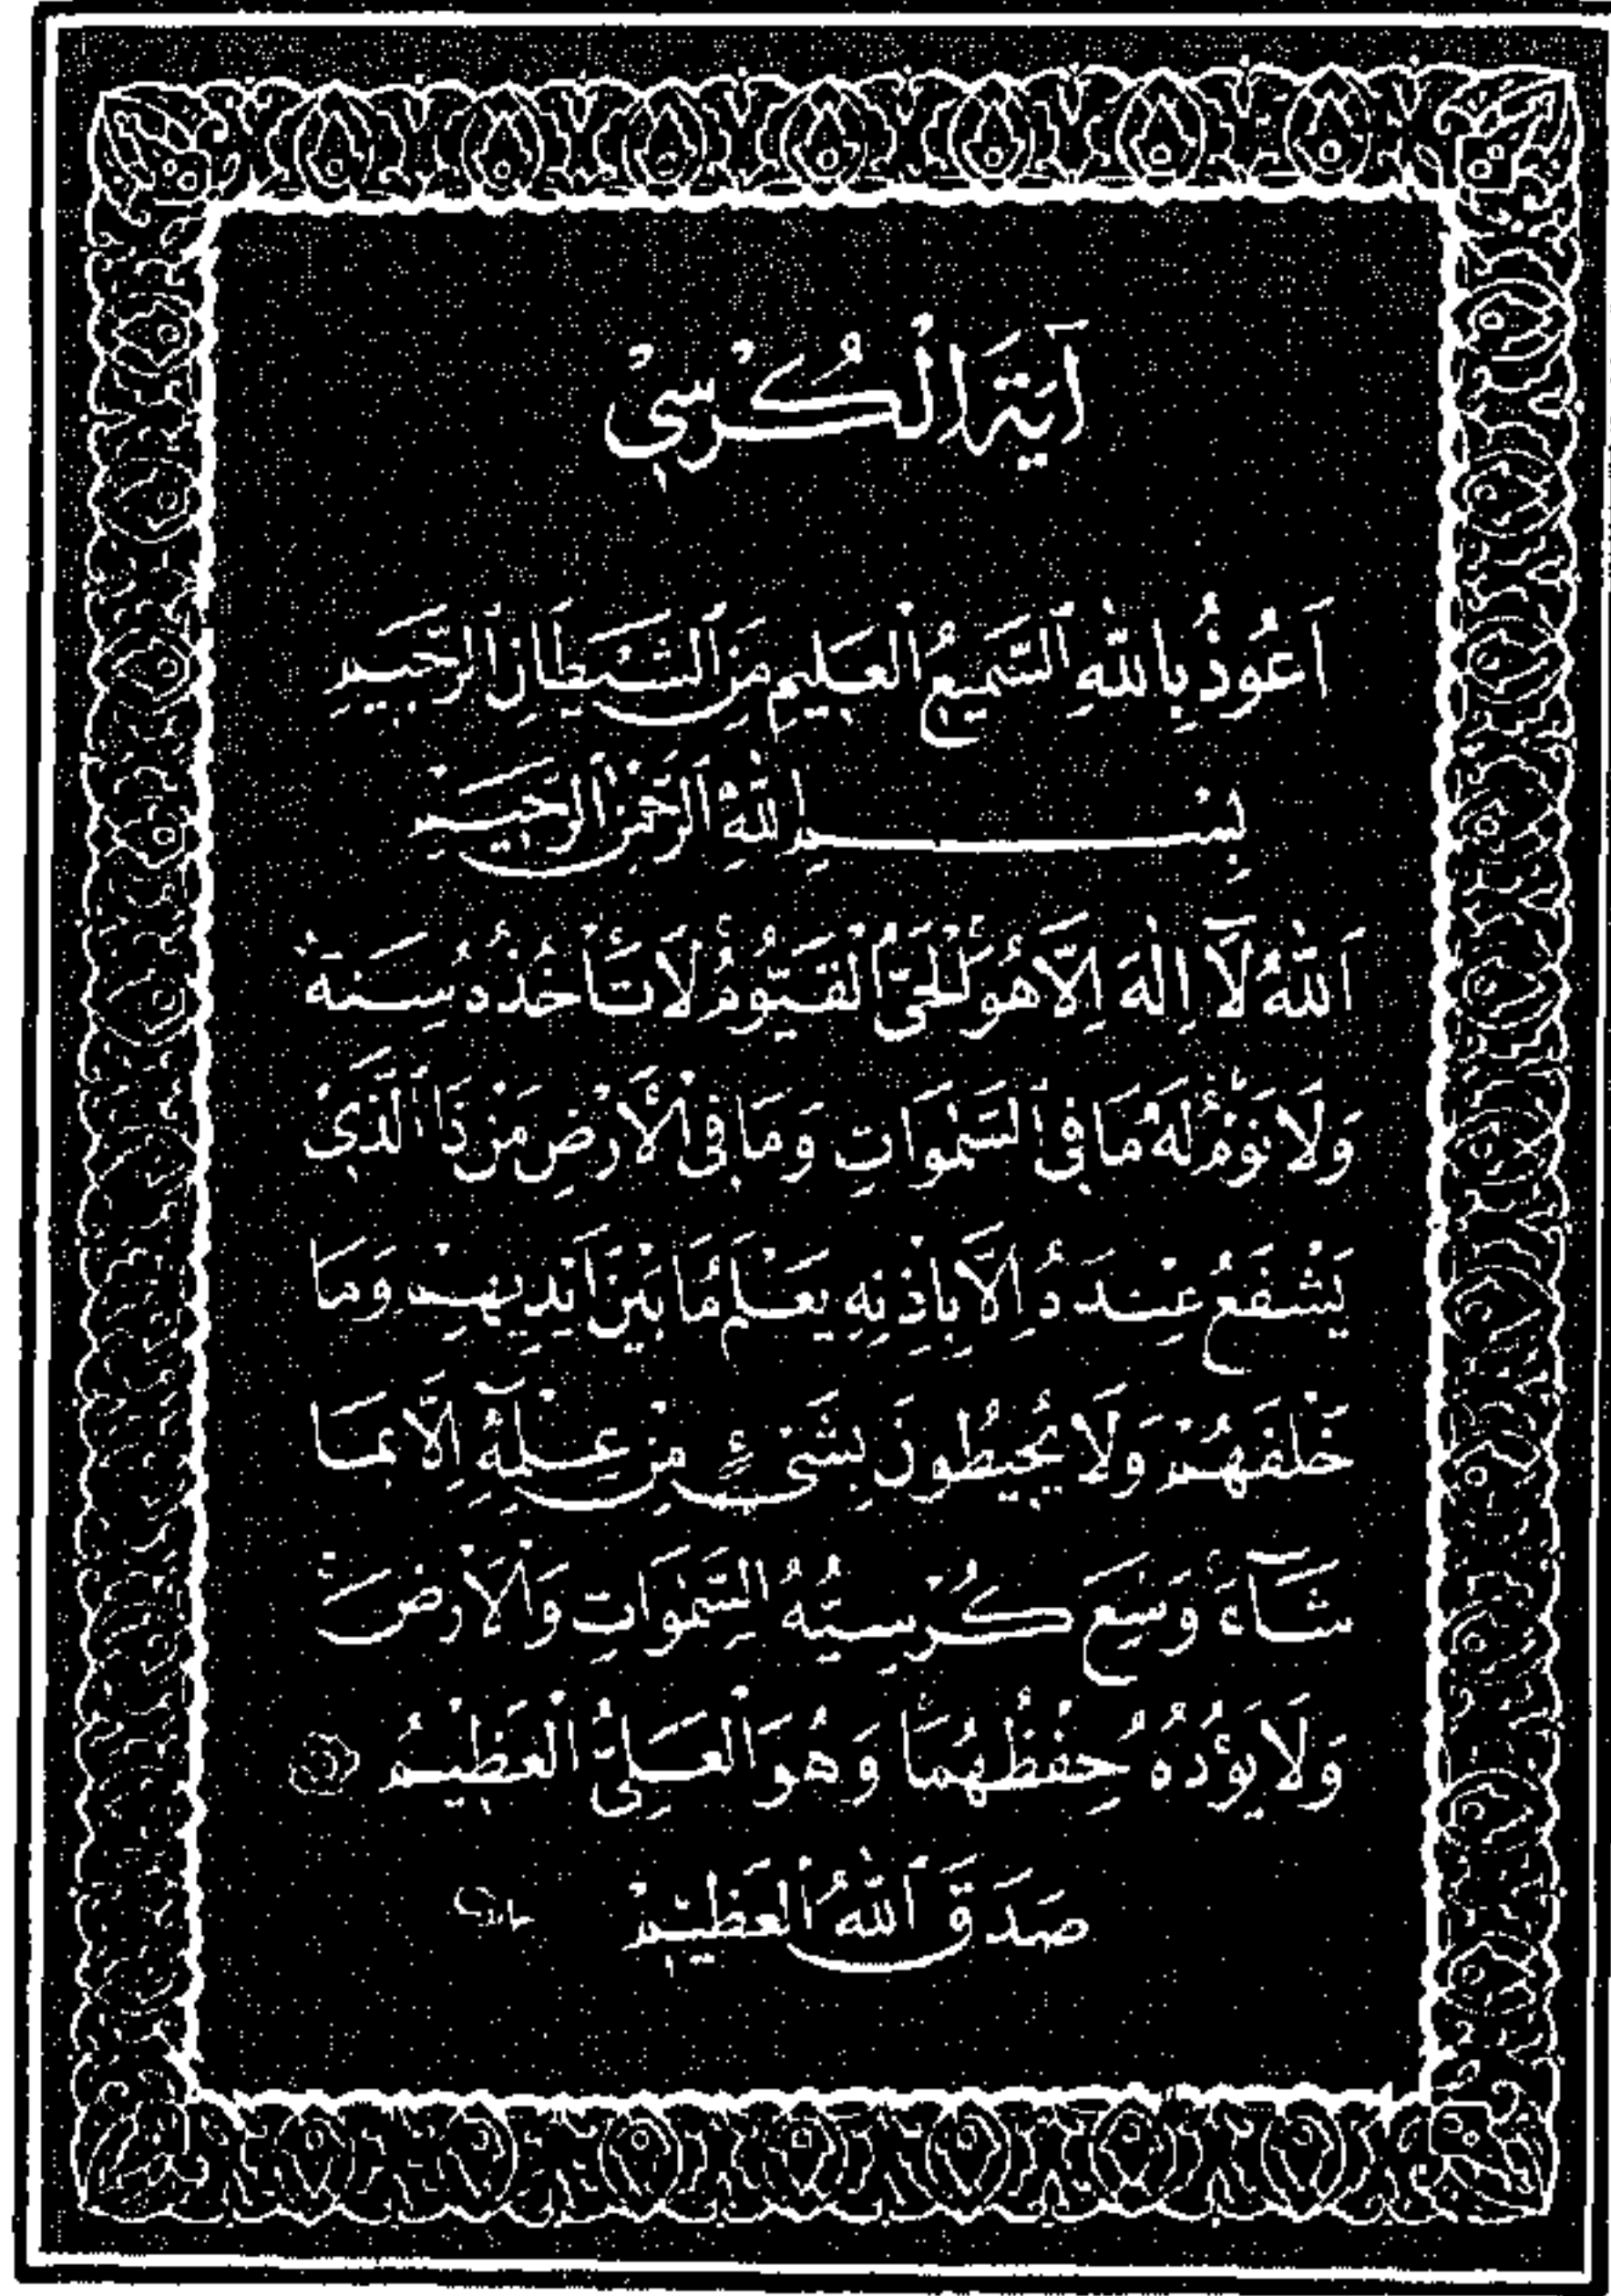 آيَةُ الْكُرْسِيْ
اَعُوذُ بِاللّٰهِ السَّمِيعِ الْعَلِيمِ مِنَ الشَّيْطَانِ الرَّجِيمِ
بِسْمِ اللّٰهِ الرَّحْمٰنِ الرَّحِيمِ
اَللّٰهُ لَآ اِلٰهَ اِلَّا هُوَ الْحَيُّ الْقَيُّومُ لَا تَأْخُذُهُ سِنَةٌ
وَلَا نَوْمٌ لَهُ مَا فِي السَّمٰوَاتِ وَمَا فِي الْاَرْضِ مَنْ ذَا الَّذِي
يَشْفَعُ عِنْدَهُ اِلَّا بِاِذْنِهِ يَعْلَمُ مَا بَيْنَ اَيْدِيهِمْ وَمَا
خَلْفَهُمْ وَلَا يُحِيطُونَ بِشَيْءٍ مِنْ عِلْمِهِٓ اِلَّا بِمَا
شَآءَ وَسِعَ كُرْسِيُّهُ السَّمٰوَاتِ وَالْاَرْضَ
وَلَا يَؤُدُهُ حِفْظُهُمَا وَهُوَ الْعَلِيُّ الْعَظِيمُ
صَدَقَ اللّٰهُ الْعَظِيمْ